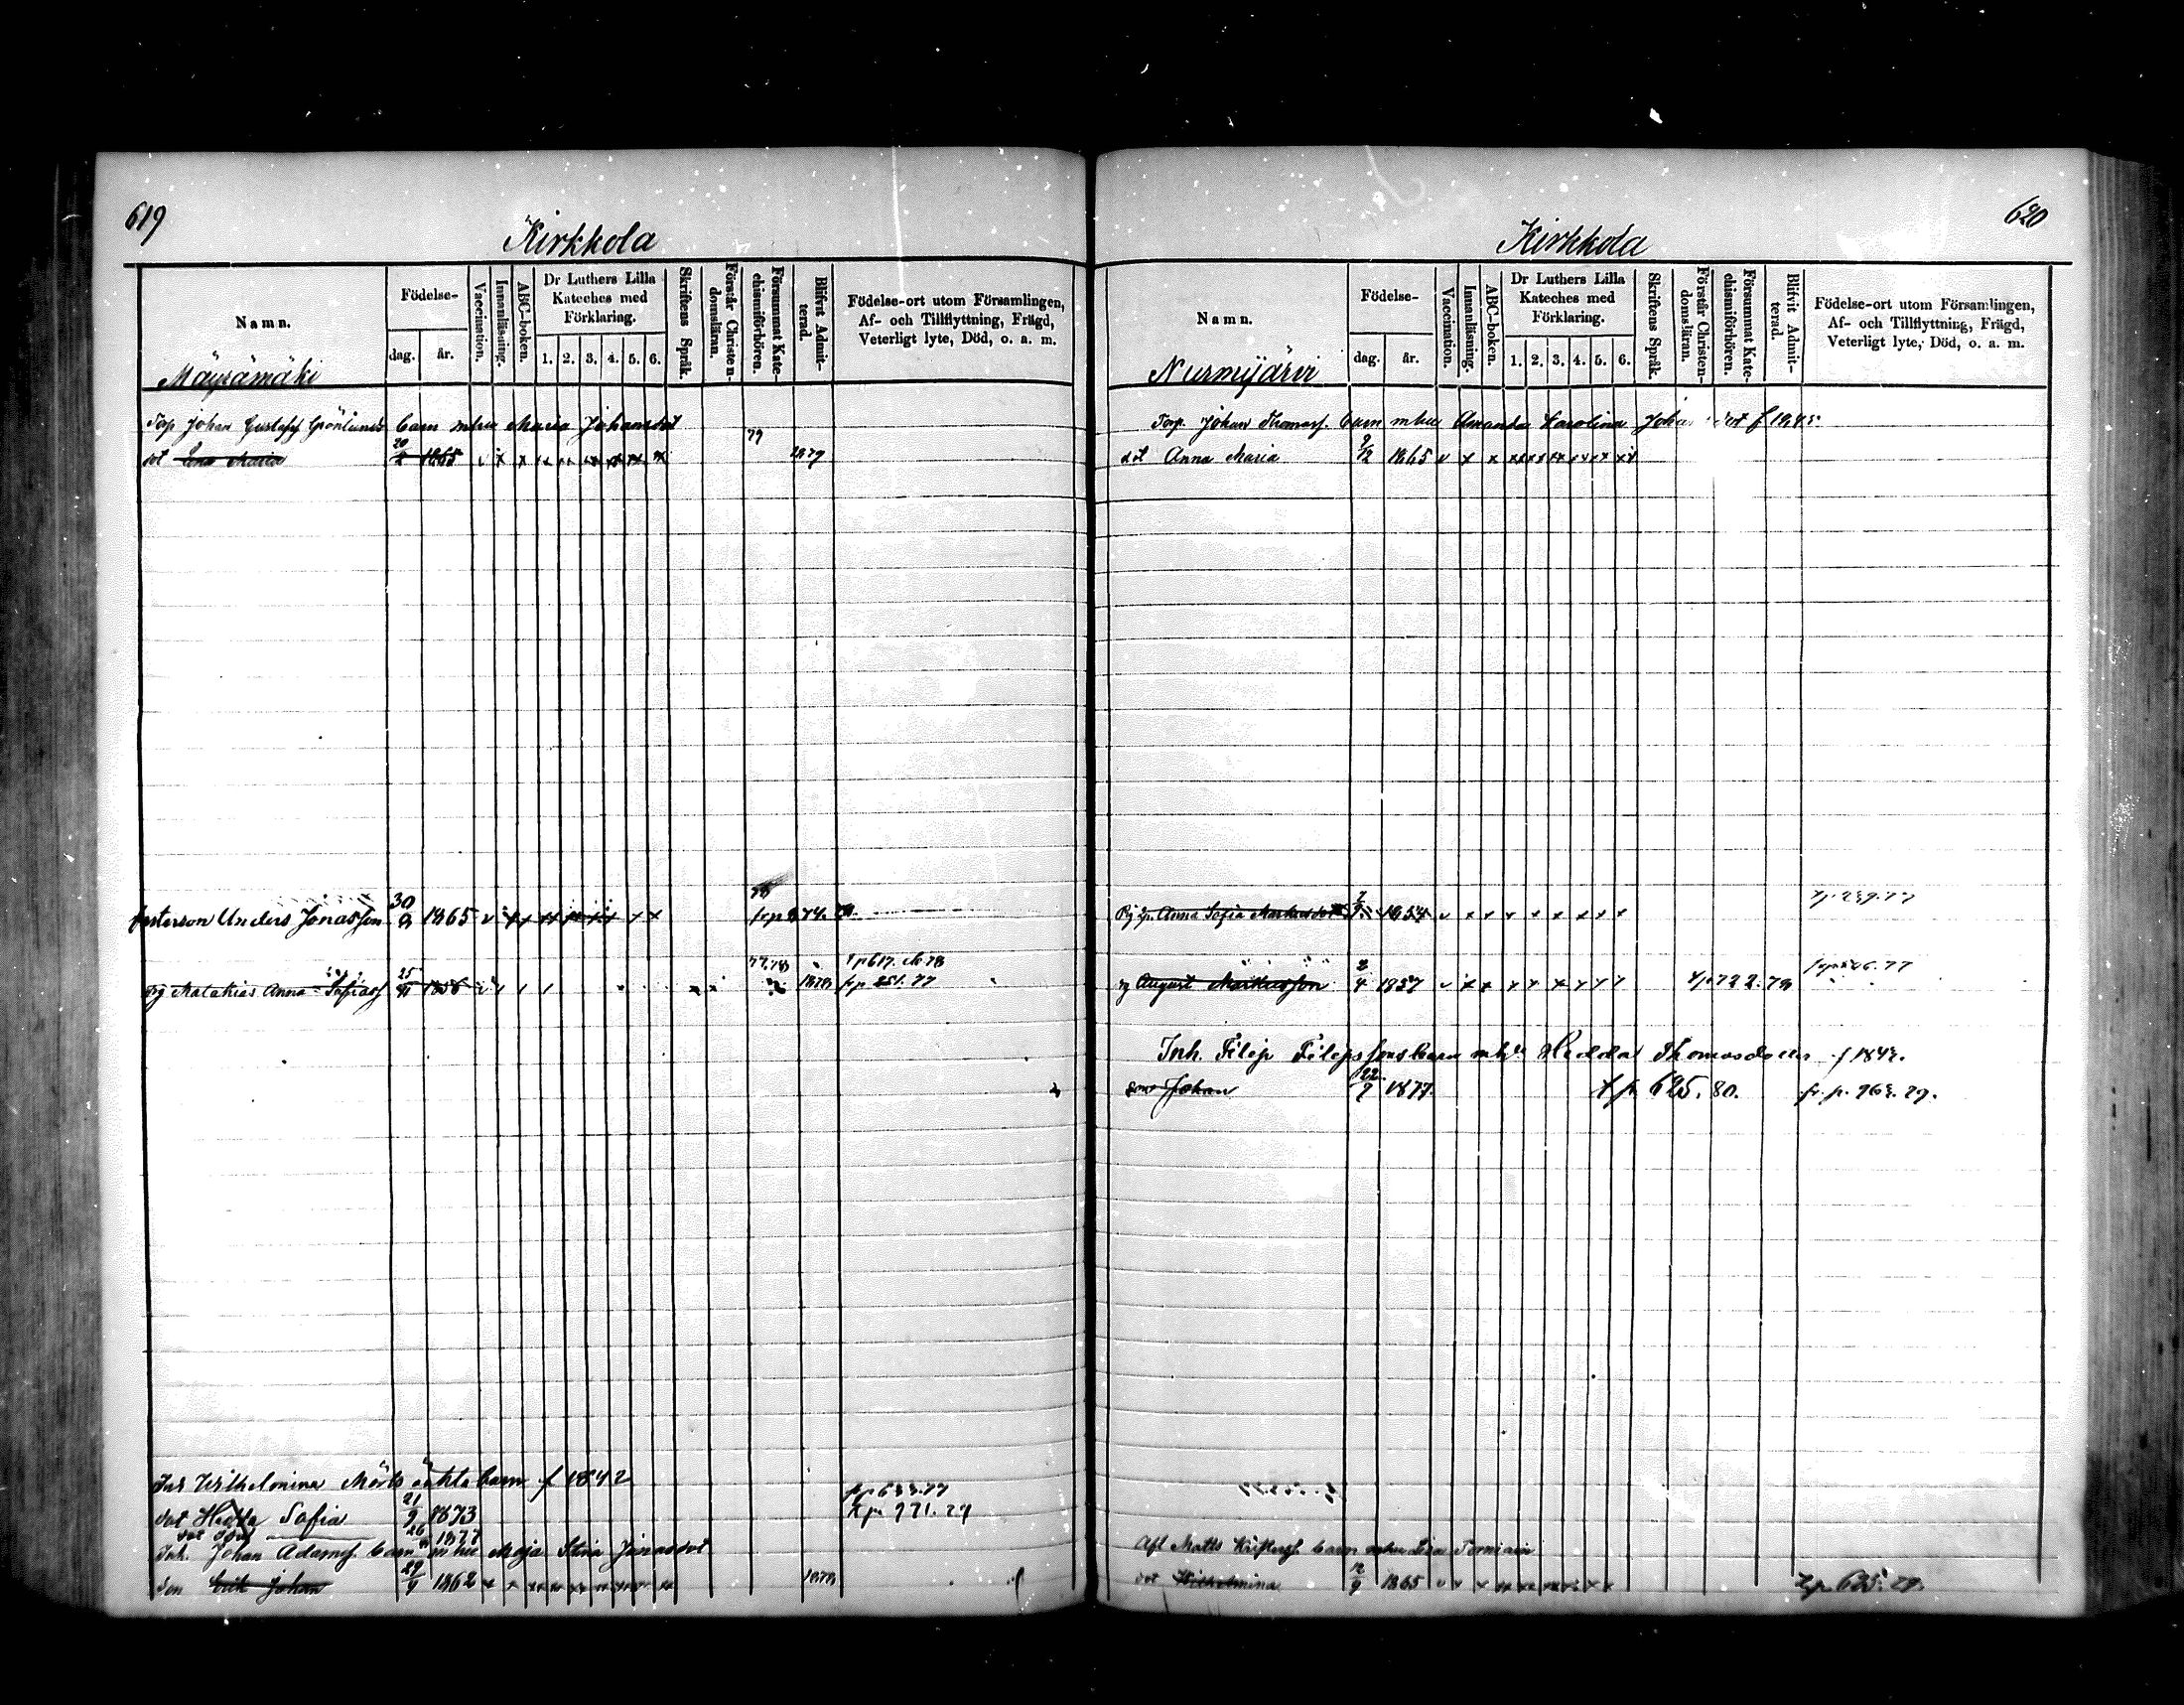 619
Kirkkola
Namn.
Födelse-
dag.
år.
Vaccination.
Innanläsning.
ABC-boken.
Dr Luthers Lilla
Kateches med
Förklaring.
1. 2. 3. 4. 5. 6.
Skriftens Språk.
Förstår Christen-
domsläran.
Försummat Kate-
chismiförhören.
Blifvit Admit-
terad.
Födelse-ort utom Församlingen,
Af- och Tillflyttning, Frägd,
Veterligt lyte, Död, o. a. m.
Mäyrämäki
Torp Johan Gustafss Grönlunds barn m hu Maria Johansdot
dot Lena Maria 20/2 1865 v x x 79 1879
fosterson Anders Jonasson 30/9 1865 v
Matakias Anna Sofiass 25/11 1858 77.78 1878 t p 617. 78
fr p 251. 77
Inh Wilhelmina Mörts oäkta barn f 1842 fr p 633.77
dot Hedda Sofia 21/9 1873 t p. 971. 79
dot 26 1877
Inh. Johan Adamss. barn m hu Maja Stina Jonasdot
son Erik Johan 29/9 1862 1878
620
Kirkkola
Namn.
Födelse-
dag.
år.
Vaccination.
Innanläsning.
ABC-boken.
Dr Luthers Lilla
Kateches med
Förklaring.
1. 2. 3. 4. 5. 6.
Skriftens Språk.
Förstår Christen-
domsläran.
Försummat Kate-
chismiförhören.
Blifvit Admit-
terad.
Födelse-ort utom Församlingen,
Af- och Tillflyttning, Frägd,
Veterligt lyte, Död, o. a. m.
Nurmijärvi
Torp. Johan Thomass. barn m hu Amanda Karolina Joha dot f 1845
dot Anna Maria 9/12 1865 v x x
Anna Sofia Markusdot 1854 t p. 239. 77
August Markusson 2/4 1857 t p 722. 78
Inh. Filip Filipssons barn m h Hedda Thomasdotter f 1842.
son Johan 22/9 1877. t p 625. 80. fr. p. 963. 79.
Afl Matts barn m hu Lisa
dot Wilhelmina 12/9 1865 t p. 625. 79.